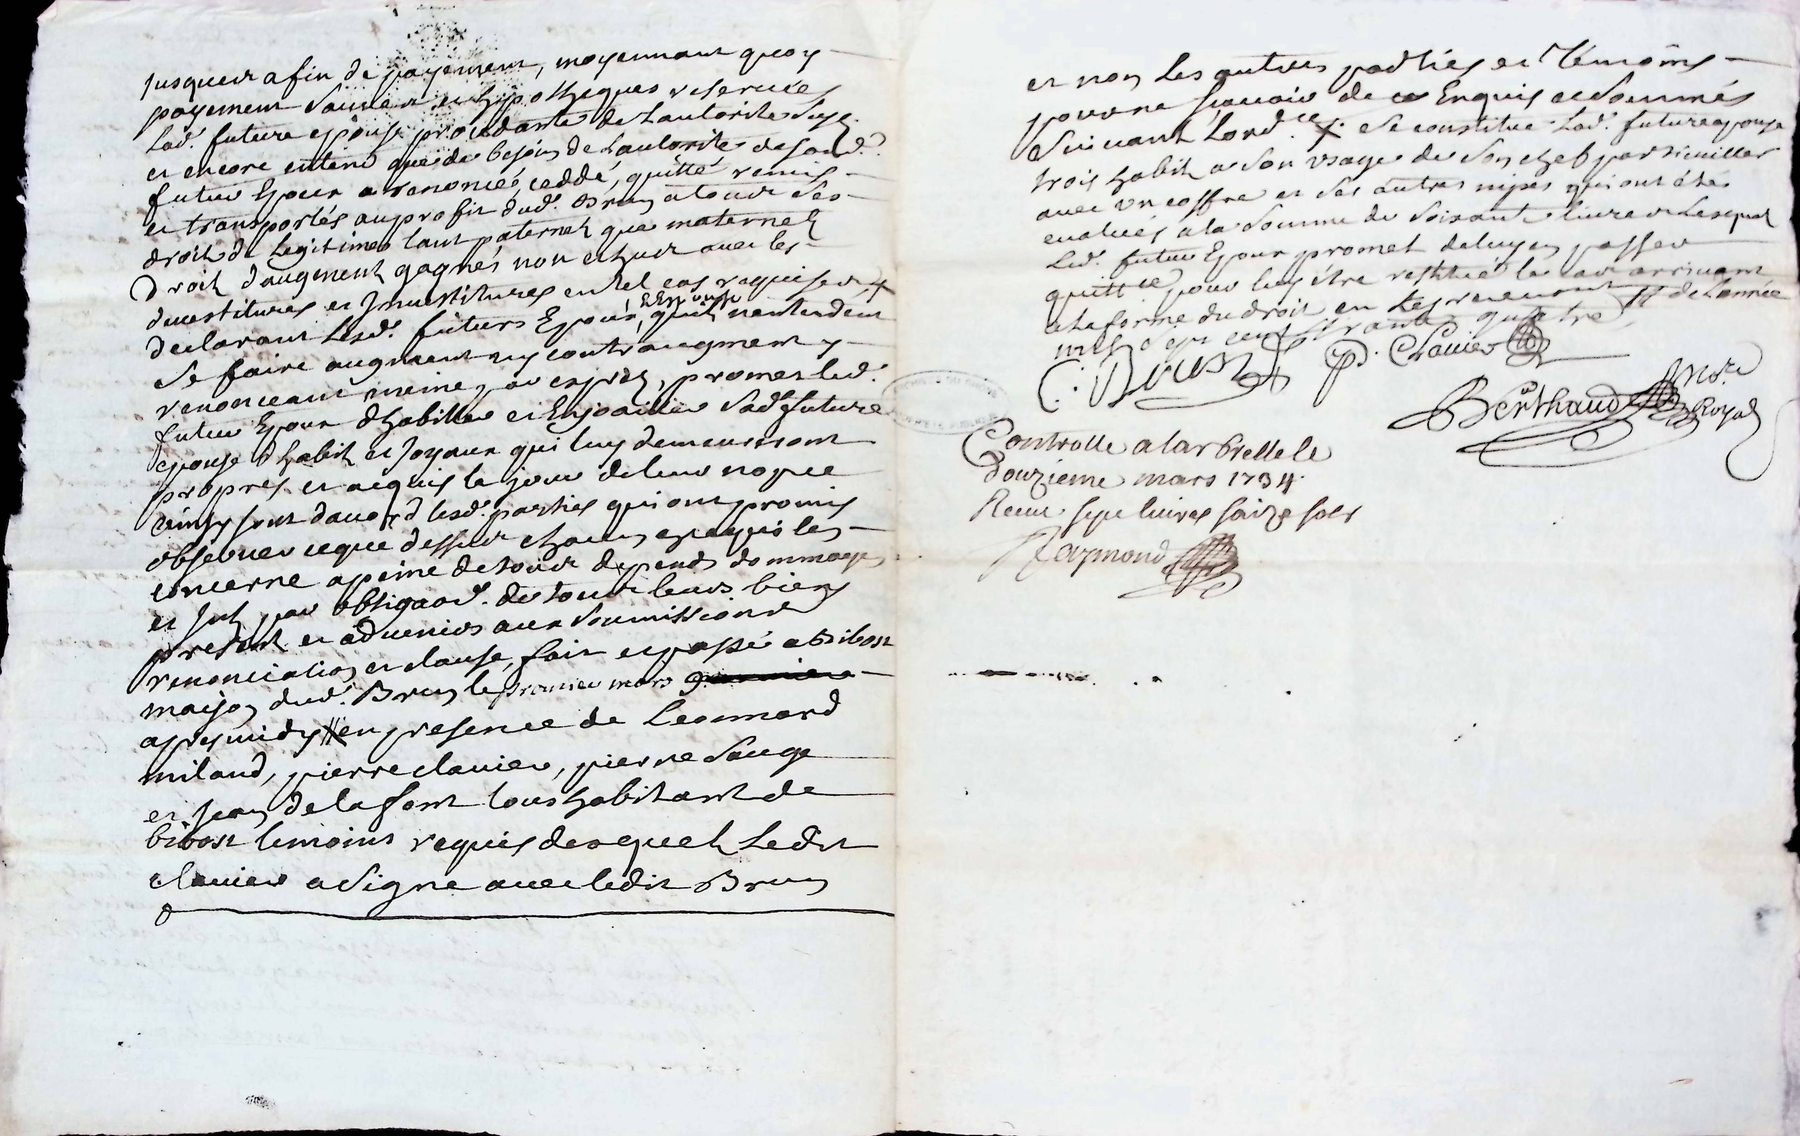 jusques a fin de payement, moyennant quoy
payement sauver et hypotheques reservées
lad. future epouse procedante de lautorite susd.
et encore entend que de besoin de lautorite desond.
futur Epoux a renoncé, ceddé, quitté remis
et transportés au profit dud. Brun a tous ses
droits de legitimes tant paternels que maternels
Droits daugments gagnés non echus avec les
devestitures et Jnvestitures en tel cas requises
declarant lesd. futurs Epoux, quils nentendent
se faire augment ny contraugment y
renonceant meme par exprés, promet led.
futur Epoux dhabiller et Enjoailler sad. future
epouse dhabits et Joyaux qui luy demeureront
propres et acquis le jour de leur nopce
ainsy sont daccord lesd. parties qui ont promis
observer ce que dessus chacun en ce qui les
concerne a peine de tous depends dommages
et Jnts par obligaon. de tous leurs biens
presents et advenirs aux soumissions
renonciation et clause, fait et passé a Bibost
maison dud. Brun le premier mars
apres midy en presence de Leonnard
miland, pierre clavier, pierre Sauge
et Jean delafont tous habitant de
bibost temoins requis desquels Ledit
clavier a signe avec ledit Brun
et non les autres parties et Témoins
pour ne sçavoir de ce Enquis et sommés
suivant Lord.ce X se constitue Lad. future epouse
trois habits a son usage de son chef particuillier
avec un coffre et ses autres nipes qui ont étés
evalués a la somme de soixante livres Lesquels
Led. futur Epoux promet de luy en passer
quittce pour luy être restitué le cas arrivant
a la forme du droit en Lespreuvement # de Lannée
mil sept cent trante quatre
C. Brun P. Clavier
Berthaud No.re Royal
Controlle a larbrelle le
douzieme mars 1734.
Receu sept livres saize sols
Raymond